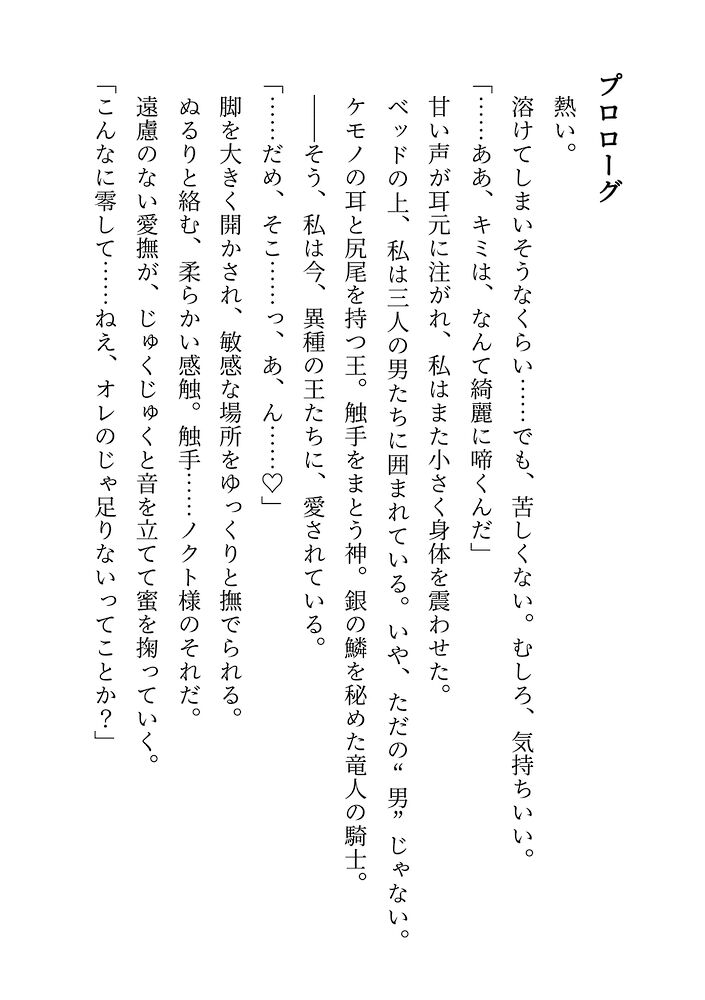 プロローグ
熱い。
溶けてしまいそうなくらい……でも、苦しくない。むしろ、気持ちいい。
「……ああ、キミは、なんて綺麗に啼くんだ」
甘い声が耳元に注がれ、私はまた小さく身体を震わせた。
ベッドの上、私は三人の男たちに囲まれている。いや、ただの“男”じゃない。
ケモノの耳と尻尾を持つ王。触手をまとう神。銀の鱗を秘めた竜人の騎士。
――そう、私は今、異種の王たちに、愛されている。
「……だめ、そこ……っ、あ、ん……♡」
脚を大きく開かされ、敏感な場所をゆっくりと撫でられる。
ぬるりと絡む、柔らかい感触。触手……ノクト様のそれだ。
遠慮のない愛撫が、じゅくじゅくと音を立てて蜜を掬っていく。
「こんなに零して……ねえ、オレのじゃ足りないってことか？」